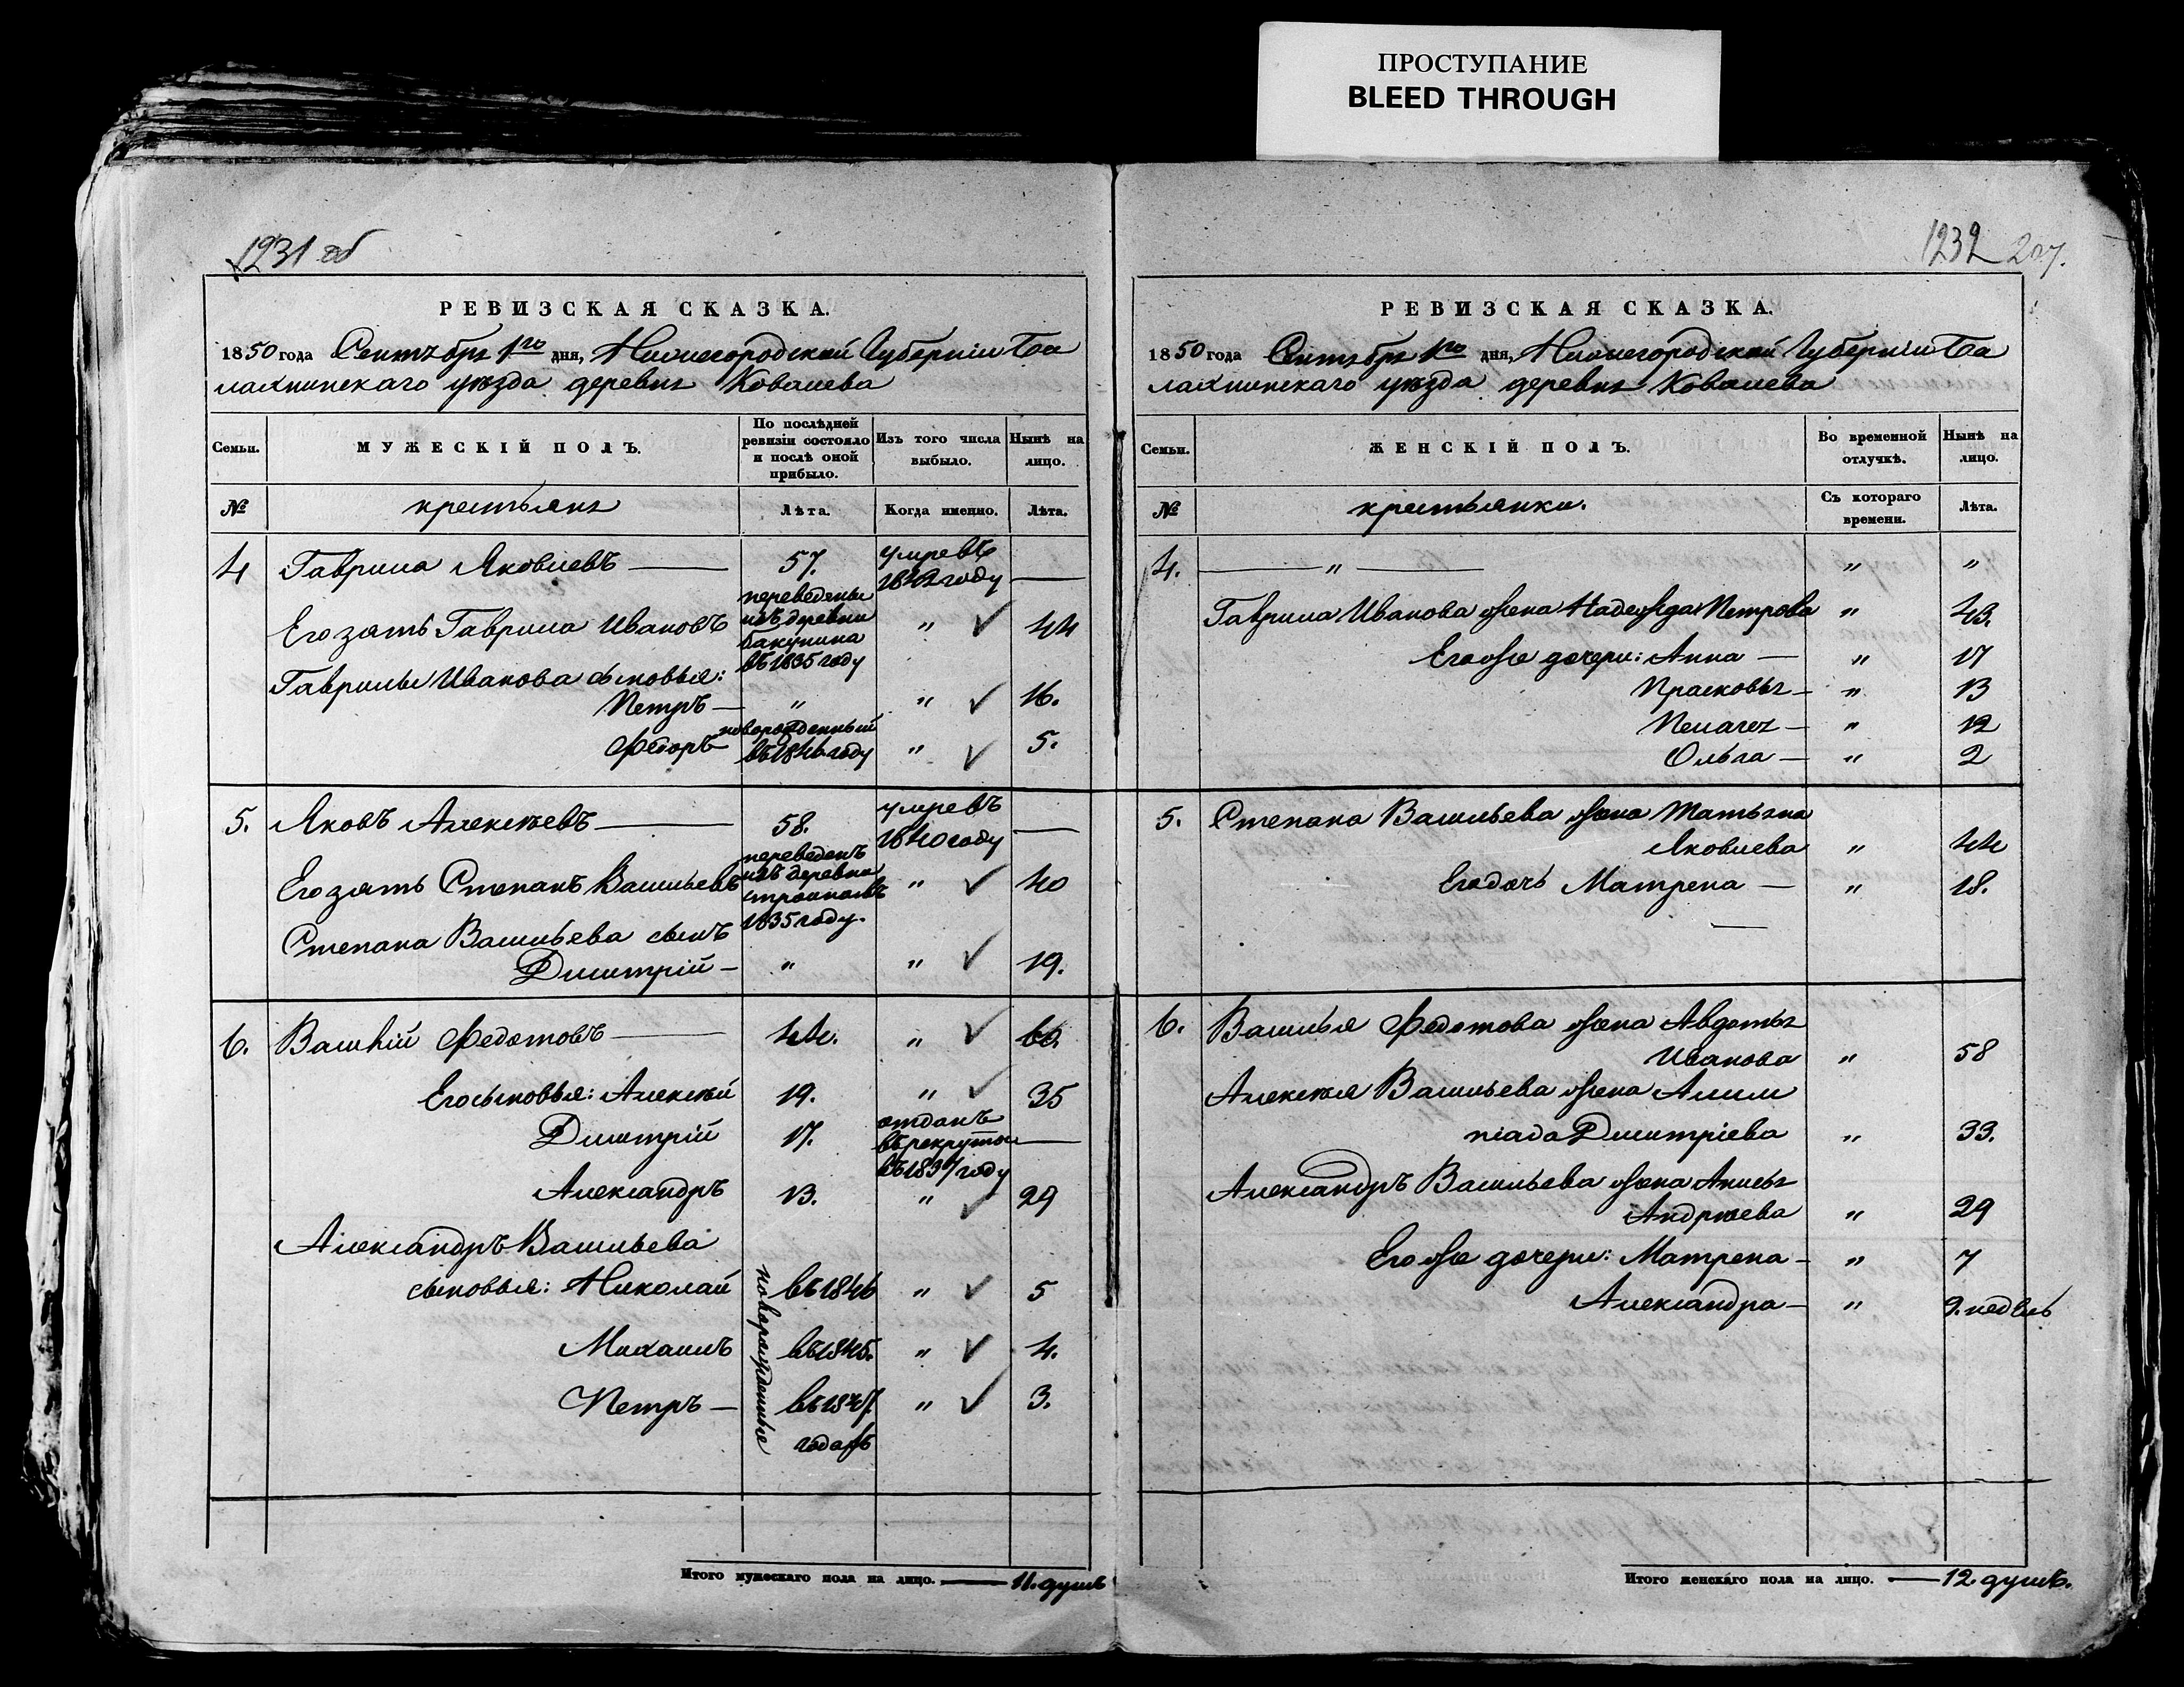 ПРОСТУПАНИЕ
BLEED THROUGH
1231 об
РЕВИЗСКАЯ СКАЗКА.
1850 года Сентября 1го дня, Нижегородской Губерніи Ба
лахнинскаго уѣзда деревня Ковалева
Семьи.
МУЖЕСКІЙ ПОЛЪ.
По послѣдней ревизіи состояло и послѣ оной прибыло.
Изъ того числа выбыло.
Нынѣ на лицо.
№
крестьяня
Лѣта.
Когда именно.
Лѣта.
4 Гаврила Яковлевъ — 57. умре въ 1842 году —
Его зять Гаврила Ивановъ переведены изъ деревни Бакунина въ 1835 году " 44
Гаврилы Иванова сыновья:
Петръ — " " 16.
Федоръ новорожденный въ 1846 году " 5.
5. Яковъ Алексѣевъ — 58. умре въ 1840 году —
Его зять Степанъ Васильевъ переведенъ изъ деревни 1835 году. " 40
Степана Васильева сынъ
Дмитрій — " " 19.
6. Василій Федотовъ — 44. " 60.
Его сыновья: Алексѣй 19. " 35
Дмитрій 17. отданъ въ рекруты въ 1837 году —
Александръ 13. " 29
Александръ Васильева
сыновья: Николай новорожденные въ 1846 " 5
Михаилъ въ 1845. " 4.
Петръ — въ 1847. " 3.
годахъ
Итого мужескаго пола на лицо. — 11. душъ
1232 207.
РЕВИЗСКАЯ СКАЗКА.
1850 года Сентября 1го дня, Нижегородской Губерніи Ба
лахнинскаго уѣзда деревня Ковалева
Семьи.
ЖЕНСКІЙ ПОЛЪ.
Во временной отлучкѣ.
Нынѣ на лицо.
№
крестьянки.
Съ котораго времени.
Лѣта.
4. — " — " "
Гаврила Иванова жена Надежда Петрова " 43.
Его же дочери: Анна — " 17
Прасковья — " 13
Пелагея — " 12
Ольга — " 2
5. Степана Васильева жена Татьяна
Яковлева " 44
Его дочь Матрена — " 18.
6. Василья Федотова жена Авдотья
Иванова " 58
Алексѣя Васильева жена Алим
піада Дмитріева " 33.
Александръ Васильева жена Анисья
Андрѣева " 29
Его же дочери: Матрена — " 7
Александра — " 9. недѣль
Итого женскаго пола на лицо. — 12. душъ.